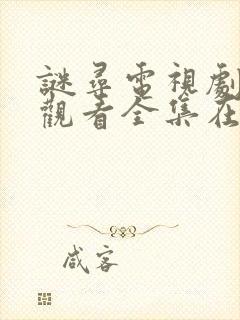 謎尋電視劇
觀看全集在
咸客